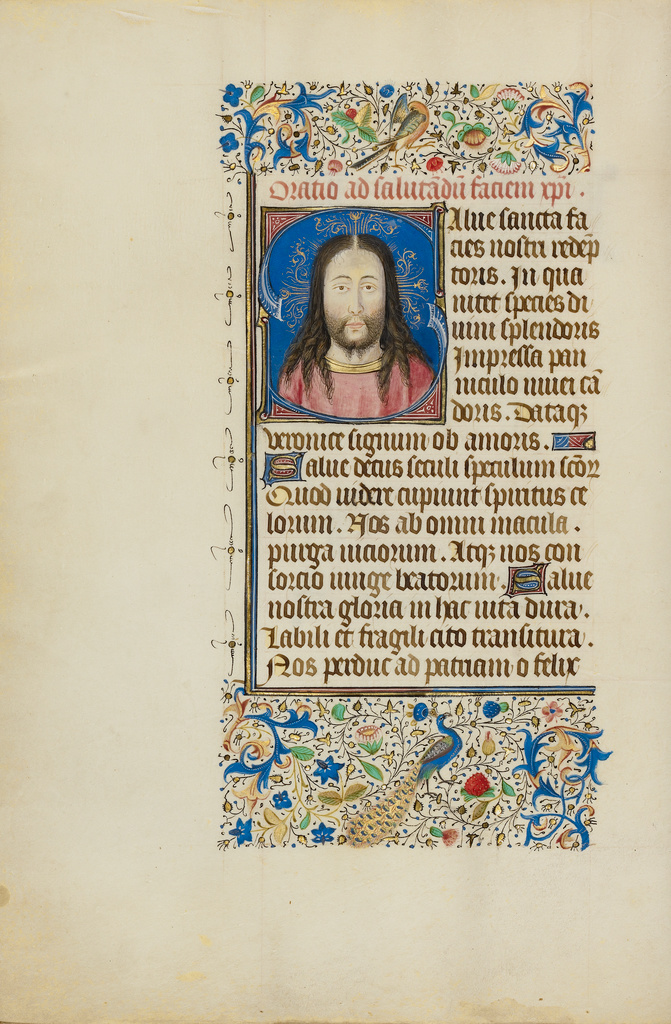 Oratio ad salutādū faciem xpi .
Alue sancta fa
cies nostri redēp
toris . In qua
nitet species di
uini splendoris
Impressa pan
niculo niuei cā
doris . Dataqȝ
veronice signum ob amoris .
Salue decus seculi speculum scōꝝ
Quod videre cupiunt spiritus ce
lorum . Nos ab omni macula .
purga uiciorum . Atqȝ nos con
sorcio iunge beatorum . Salue
nostra gloria in hac uita dura .
Labili et fragili cito transitura .
Nos perduc ad patriam o felix